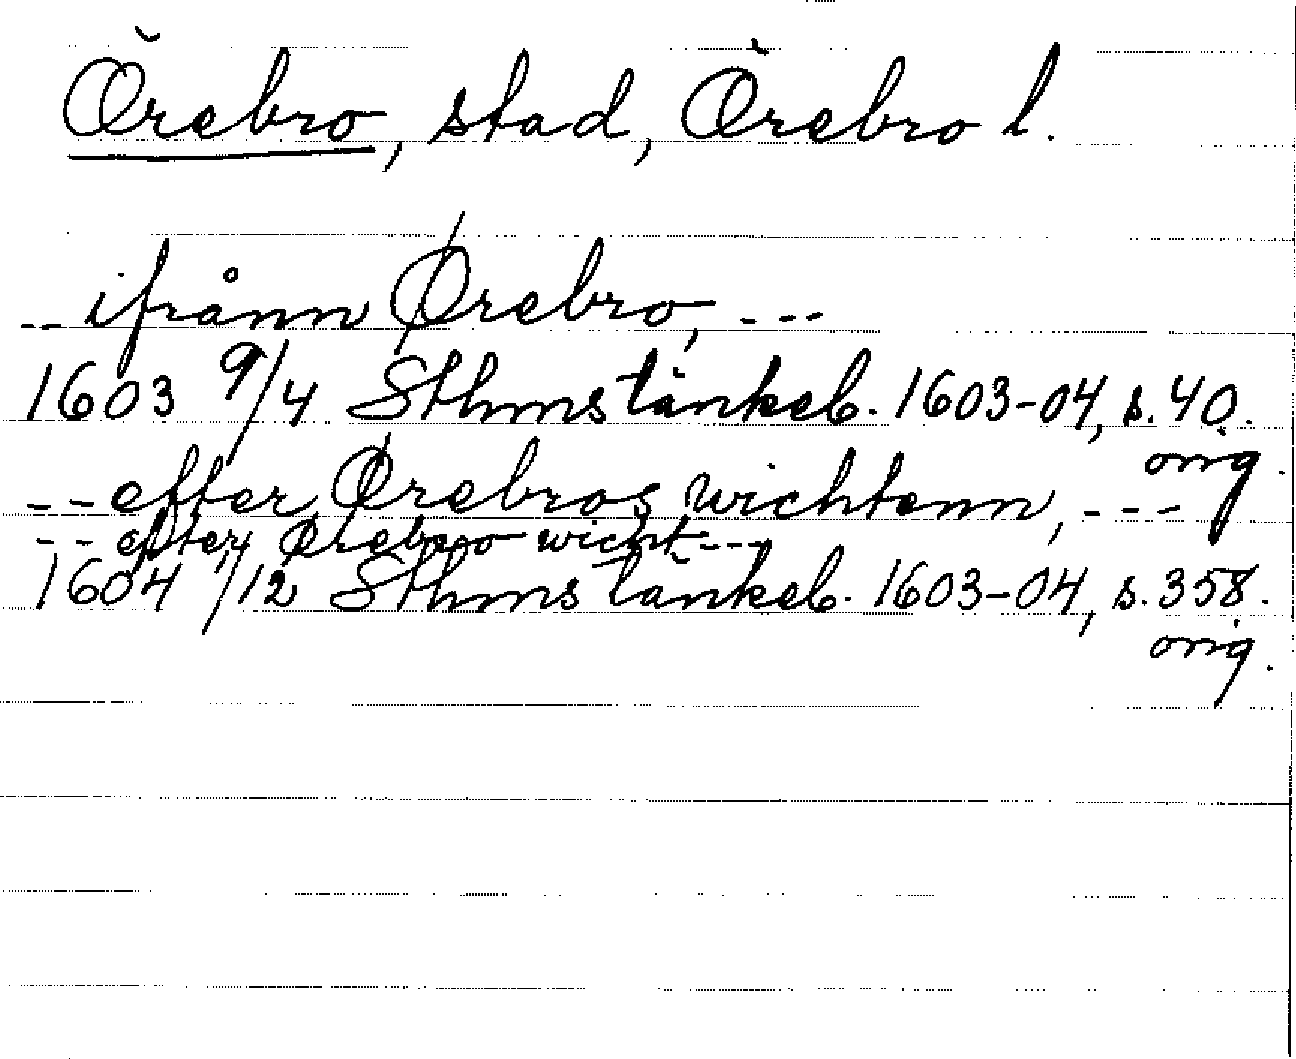 Örebro, stad, Örebro l.
-- ifrånn Ørebro, ---
1603 9/4 Sthms tänkeb. 1603-04, s. 40.
orig.
-- efter Ørebros wichtenn, ---
-- efter Ørebroo wicht ---
1604 1/12 Sthms tänkeb. 1603-04, s. 358.
orig.